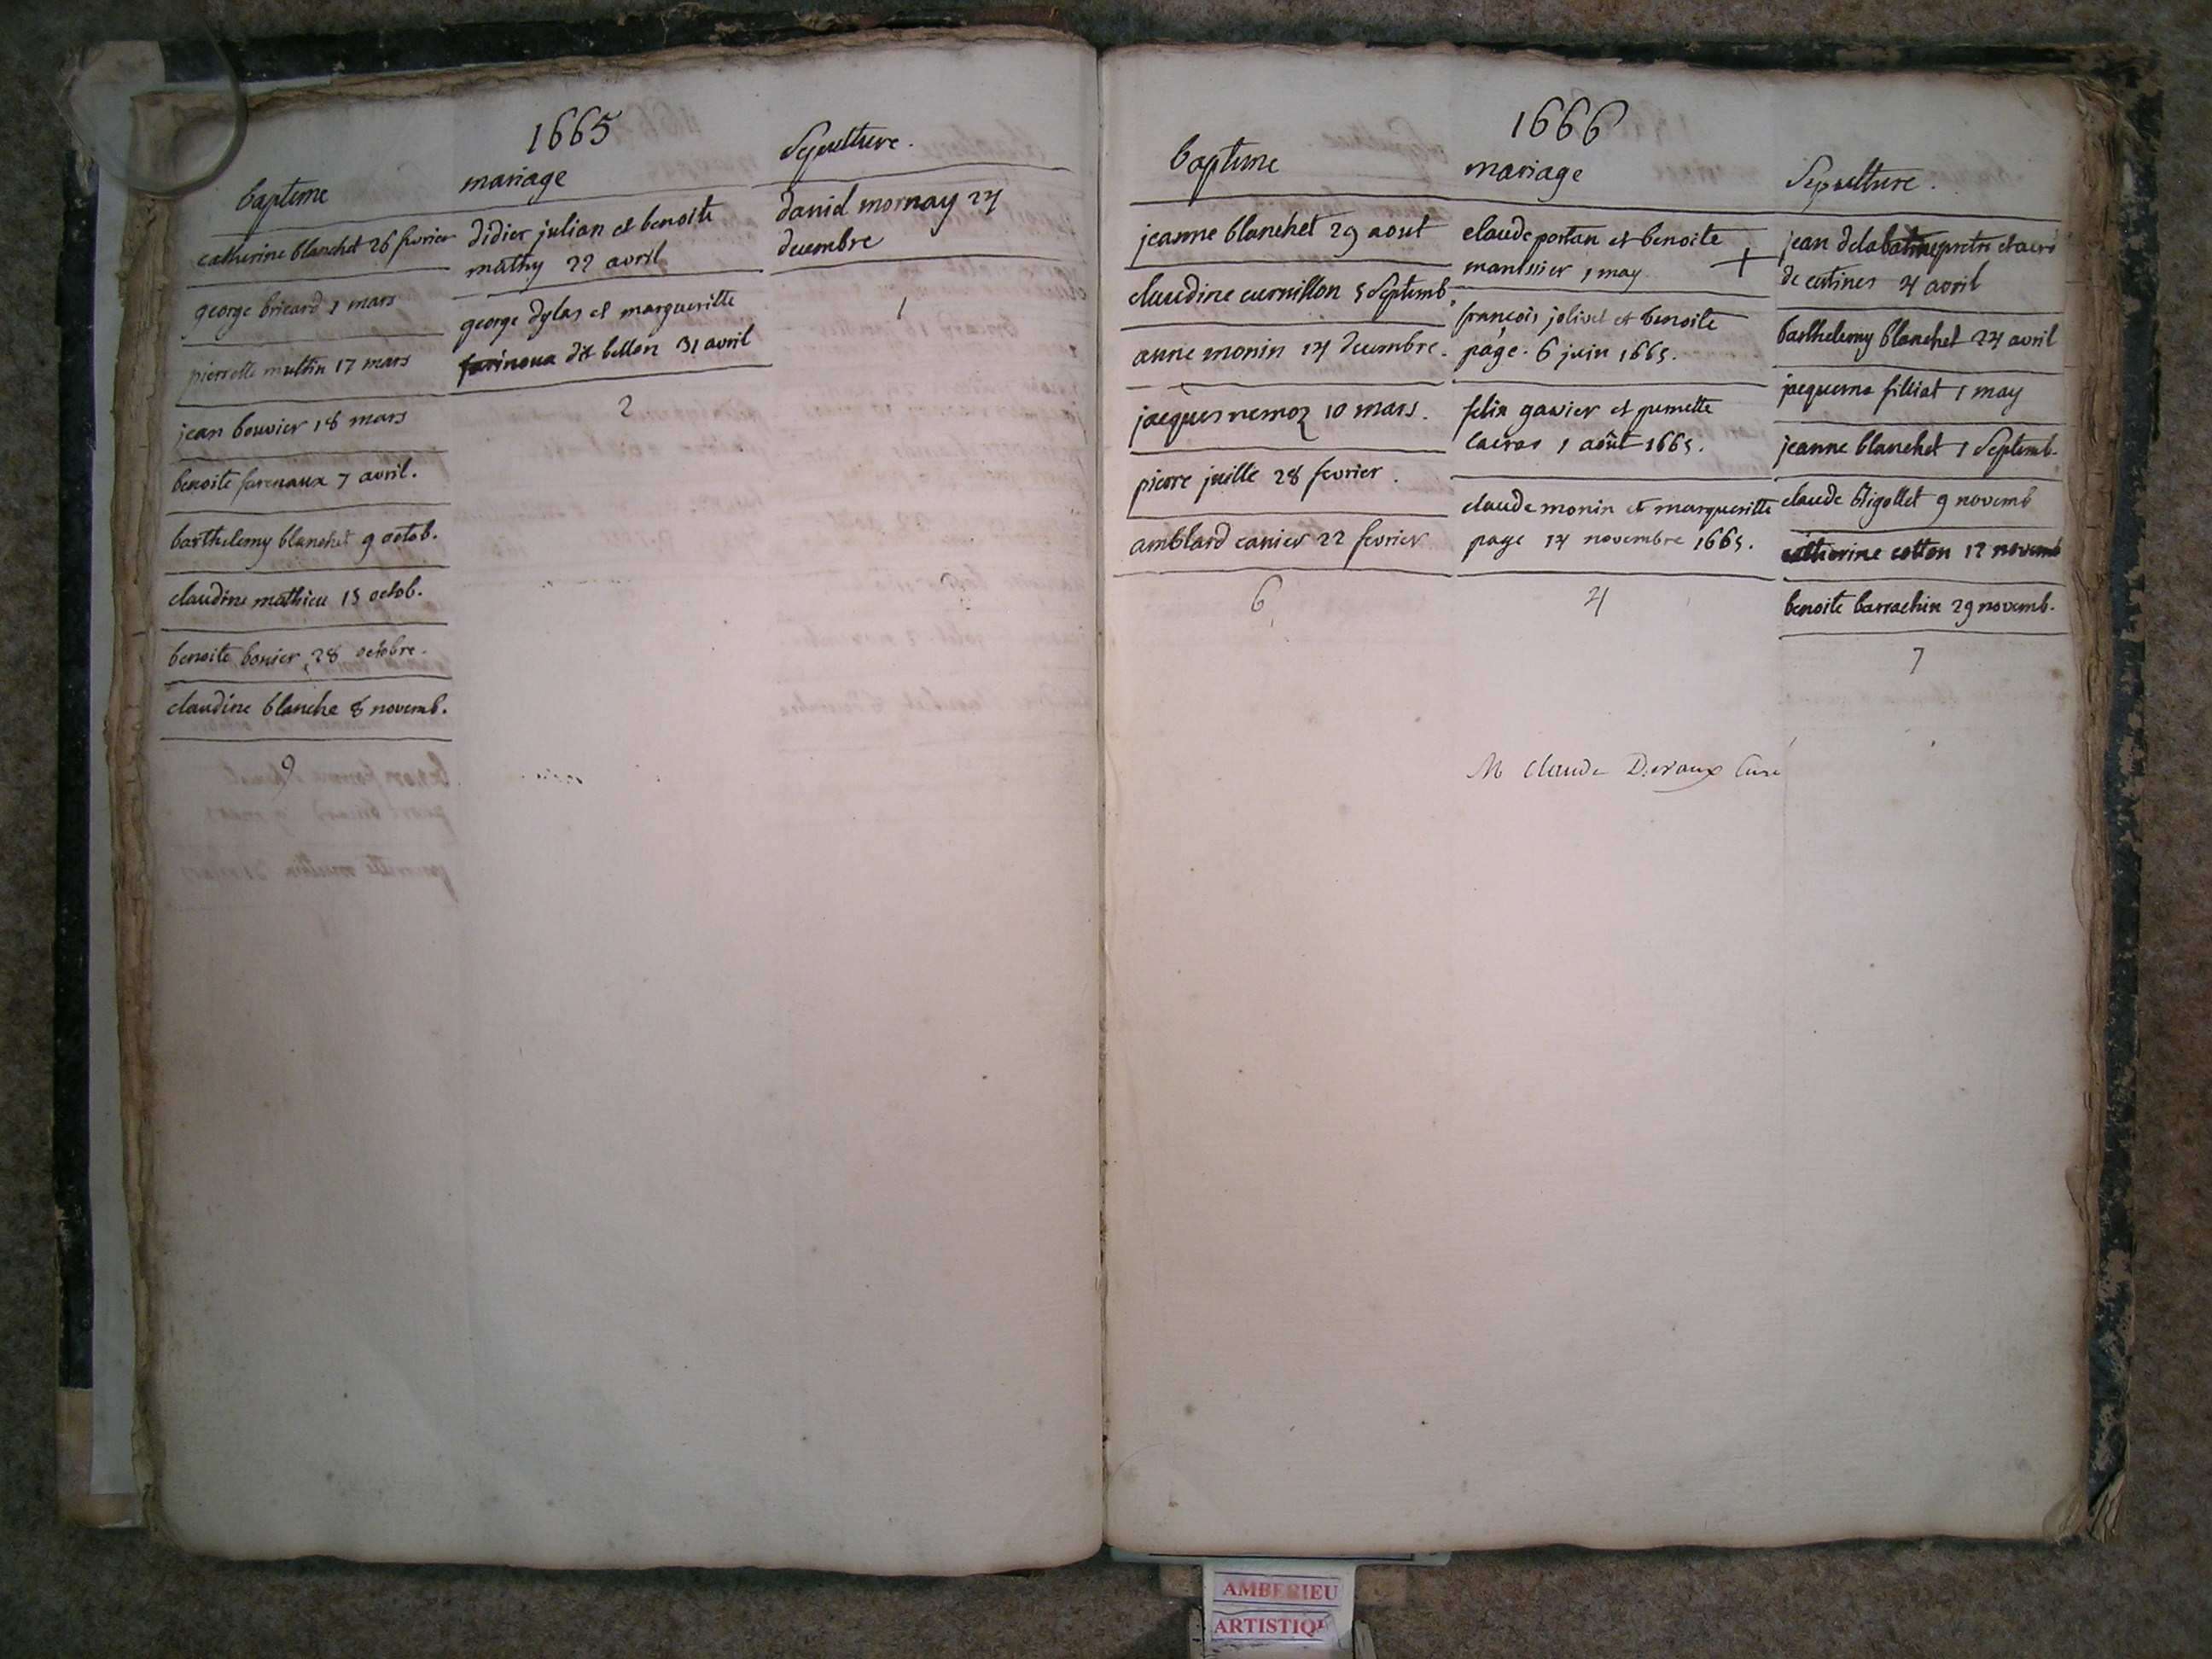 1665
bapteme
catherine blanchet 26 fevrier
george bricard 1 mars
pierrette multin 17 mars
jean bouvier 18 mars
benoite farenaux 7 avril.
barthelemy blanchet 9 octob.
claudine mathieu 15 octob.
benoite bonier 28 octobre.
claudine blanche 8 novemb.
9
mariage
didier julian et benoite
mathy 22 avril
george dylas et margueritte
farinoux dit bellon 31 avril
2
Sepulture.
david mornay 24
decembre
1
1666
bapteme
jeanne blanchet 29 aout
claudine curnillon 5 Septemb.
anne monin 14 decembre.
jacques nemoz 10 mars.
pierre juille 28 fevrier.
amblard canier 22 fevrier
6
mariage
claude portan et benoite
manissier 1 may
françois jolivet et benoite
page. 6 juin 1665.
felix gavier et pernette
cacras 1 août 1665.
claude monin et margueritte
page 14 novembre 1665.
4
Sepulture.
jean delabatine pretre et
de cutines 4 avril
barthelemy blanchet 24 avril
jaquema filliat 1 may
jeanne blanchet 1 Septemb.
claude 9 novemb
catherine cotton 12 novemb
benoite barrachin 29 novemb.
7
M Claude Devaux Curé
AMBERIEU
ARTISTIQU